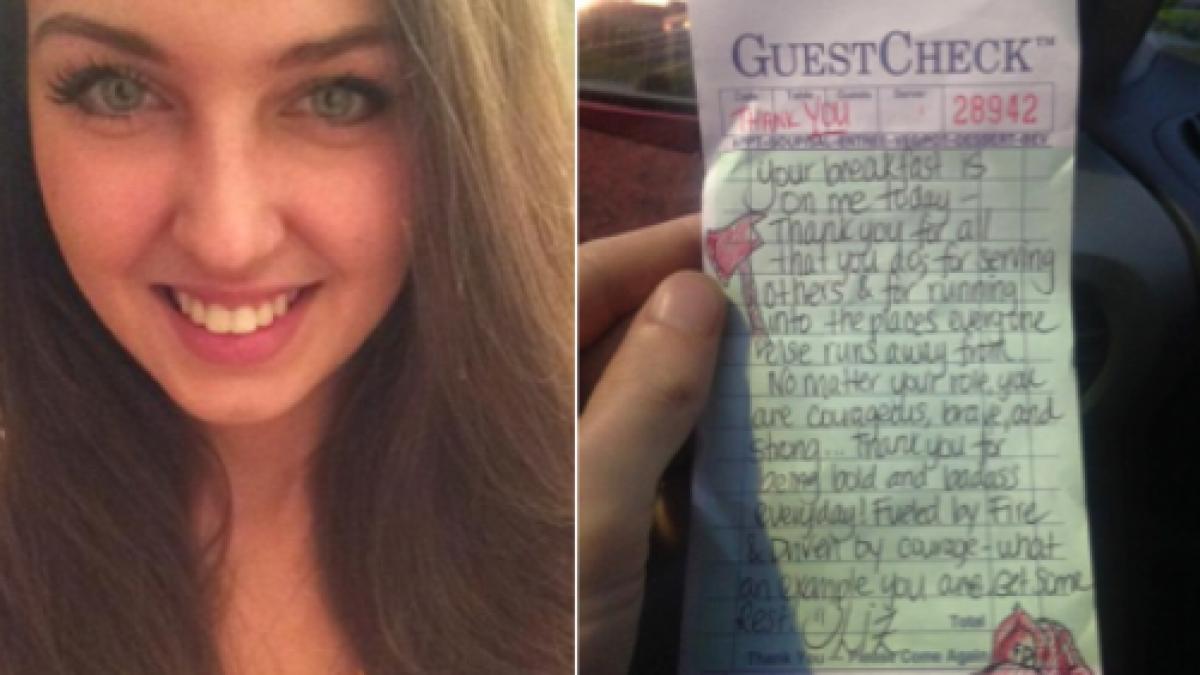 GUESTCHECK™
Date Table Guests Server
THANK YOU 28942
Your breakfast is
on me today -
Thank you for all
that you do; for serving
others & for running
into the places everyone
else runs away from
No matter your role, you
are courageous, brave, and
strong... Thank you for
being bold and badass
everyday! Fueled by Fire
& Driven by courage - what
an example you are. Get some
Rest Liz
Total
Thank You - Please Come Again